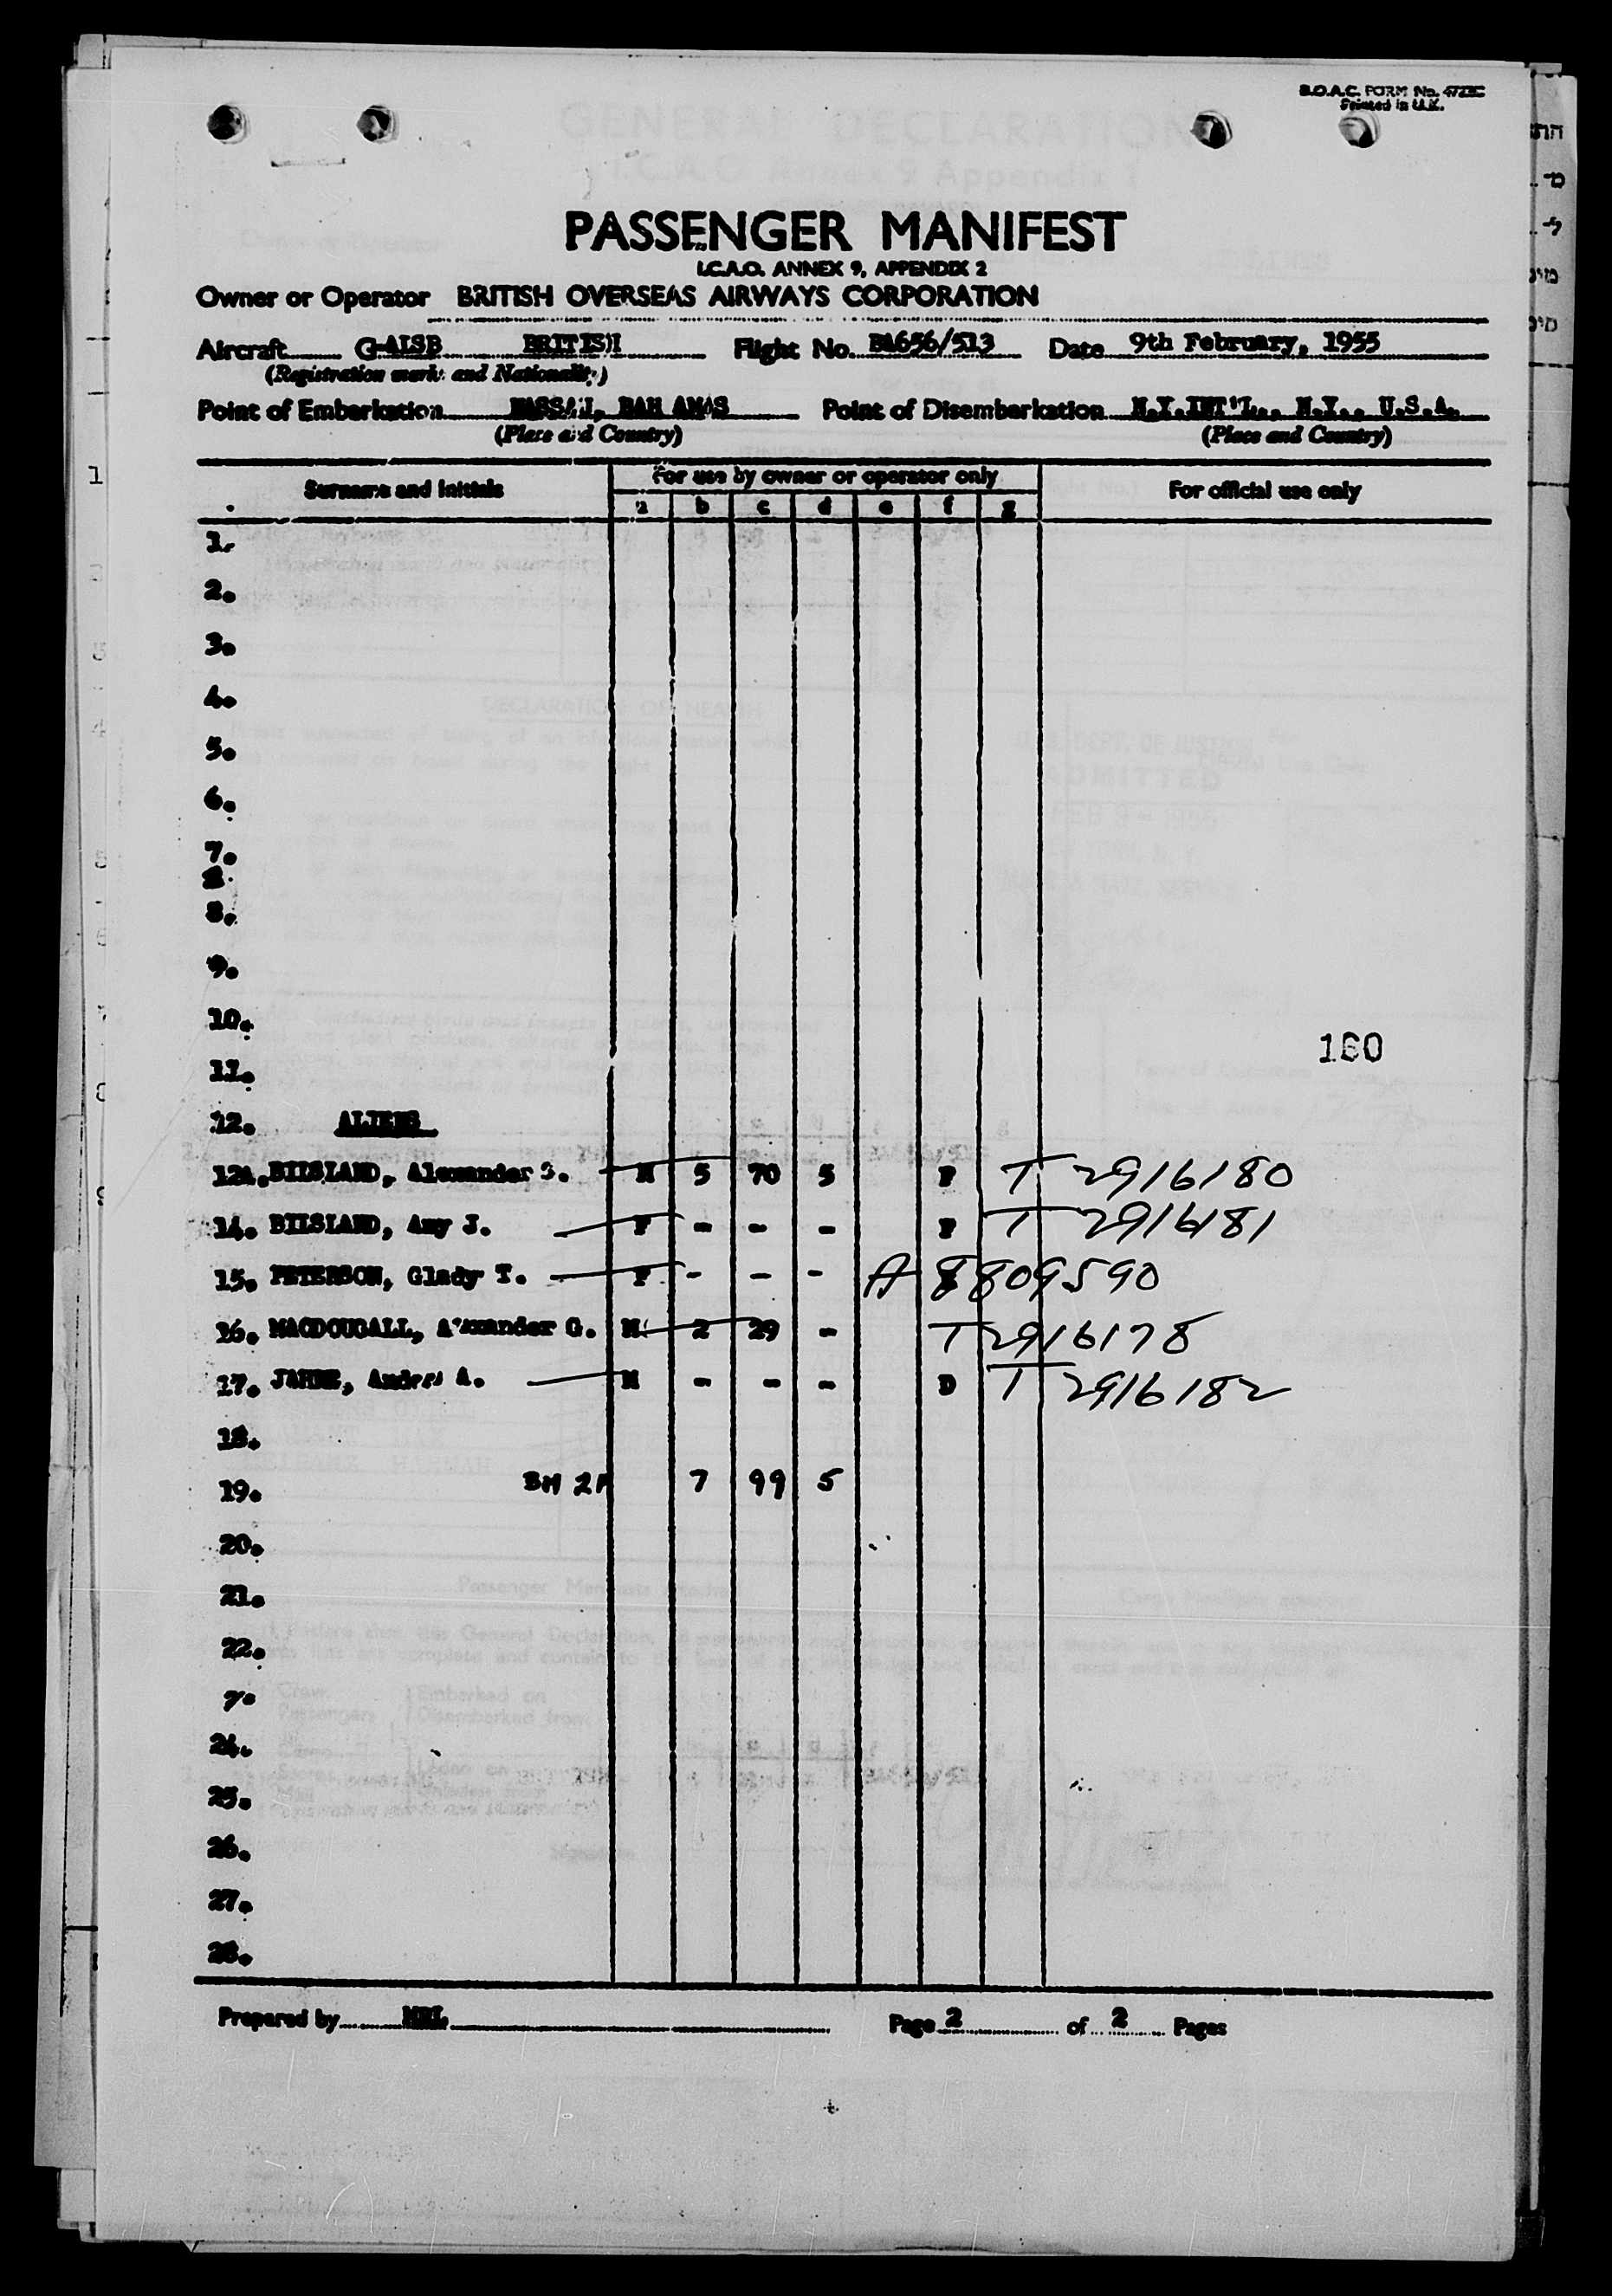 B.O.A.C. FORM No.
Printed in U.K.
PASSENGER MANIFEST
I.C.A.O. ANNEX 9, APPENDIX 2
Owner or Operator BRITISH OVERSEAS AIRWAYS CORPORATION
Aircraft G-ALSB BRITISH Flight No. BA656/513 Date 9th February, 1955
(Registration marks and Nationality)
Point of Embarkation NASSAU, BAHAMAS Point of Disembarkation N.Y.INT'L., N.Y., U.S.A.
(Place and Country) (Place and Country)
Surname and Initials For use by owner or operator only For official use only
a b c d e f g
1.
2.
3.
4.
5.
6.
7.
8.
9.
10.
180
11.
12. ALIENS
12A. BILSLAND, Alexander S. M 5 70 5 F T 2916180
14. BILSLAND, Amy J. F - - - F T 2916181
15. PETERSON, Glady T. F - - - A 8809590
16. MACDOUGALL, Alexander G. M 2 29 - T 2916178
17. JAHRE, Anders A. M - - - D T 2916182
18.
19. 7 99 5
20.
21.
22.
24.
25.
26.
27.
28.
Prepared by Page 2 of 2 Pages